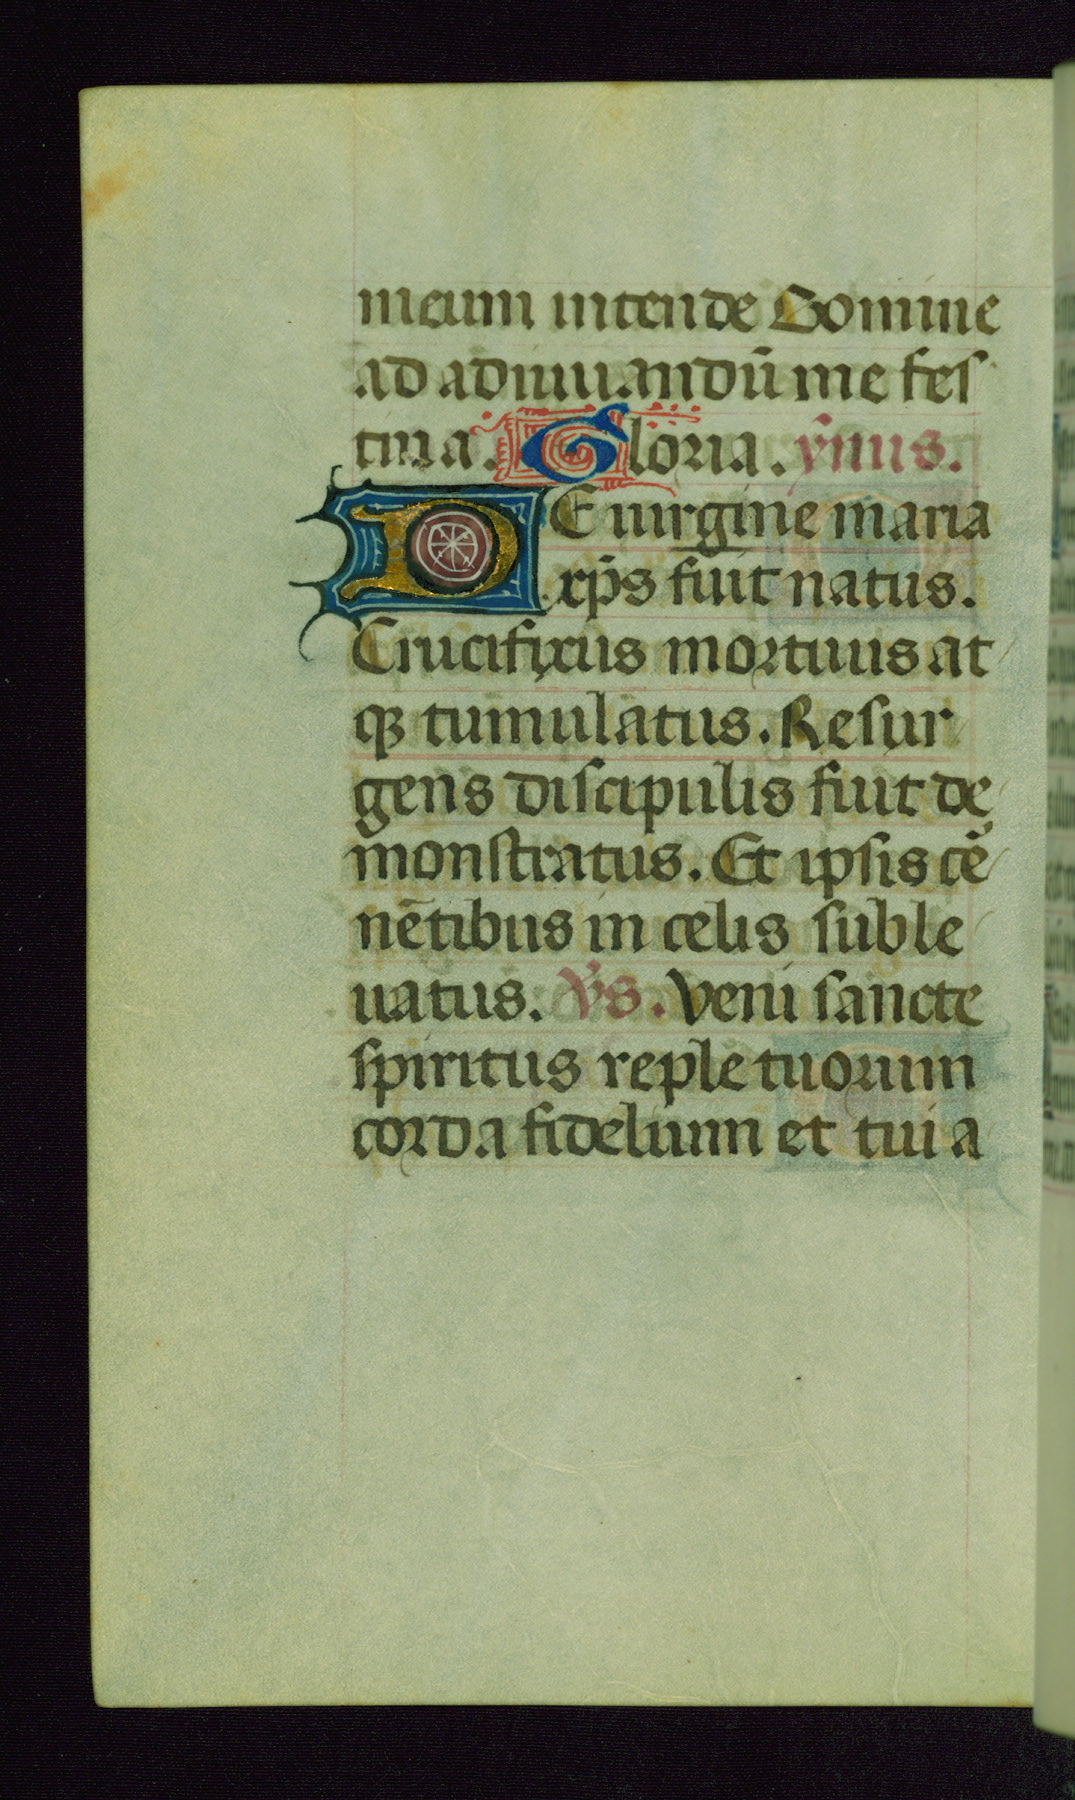 meum intende Domine
ad adiuuandū me fes
tina. Gloria. ȳnus.
DE uirgine maria
xp̄s fuit natus.
Crucifixus mortuus at
qꝫ tumulatus. Resur
gens discipulis fuit de
monstratus. Et ipsis cē
nētibus in celis suble
uatus. Vs. Veni sancte
spiritus reple tuorum
corda fidelium et tui a